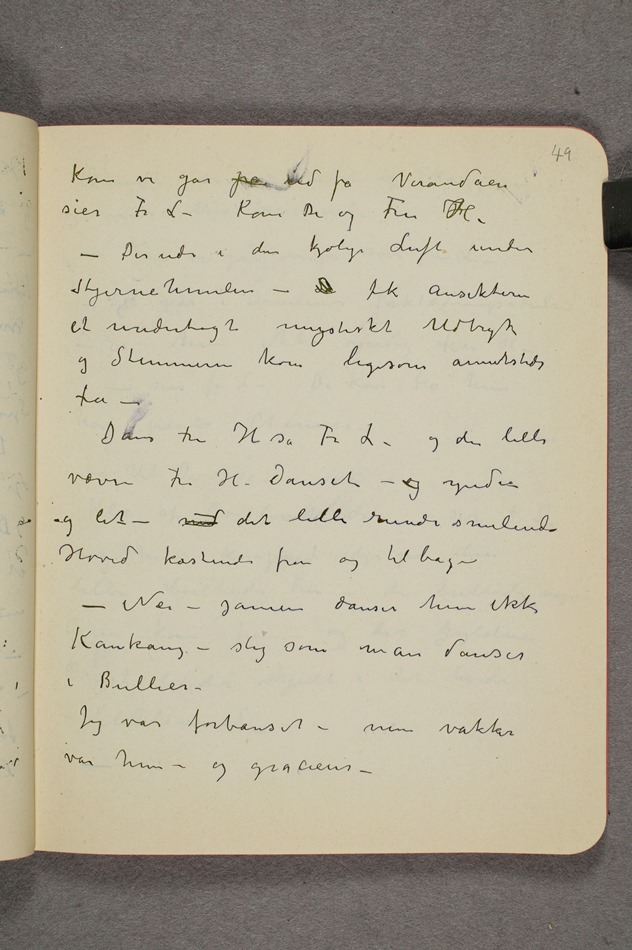 49
Kom vi går på ud på Verandaen
sier Fr L – Kom De og Fru H.
– Der ude i den kjølige Luft under
Stjernehimlen – fik ansikterne
et underligt mystiskt Udtryk
og Stemmerne kom ligesom
fra –
Dans Fru H sa Fr L – og den lille
vævre Fr H – Dansed – og yndig
og let – med det lille runde smilende
Hoved kastende frem og tilbage
– Nei – jamen danser hun ikke
Kankang – slig som man danser
i Bullier –
Jeg var forbauset – men vakker
var hun – og graciøs –